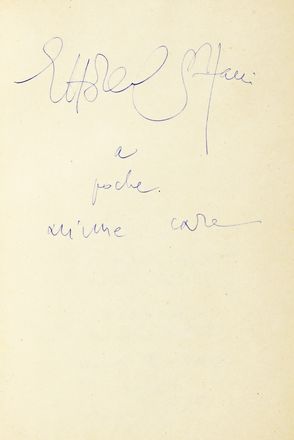 Ettore Settanni
a
poche
anime care